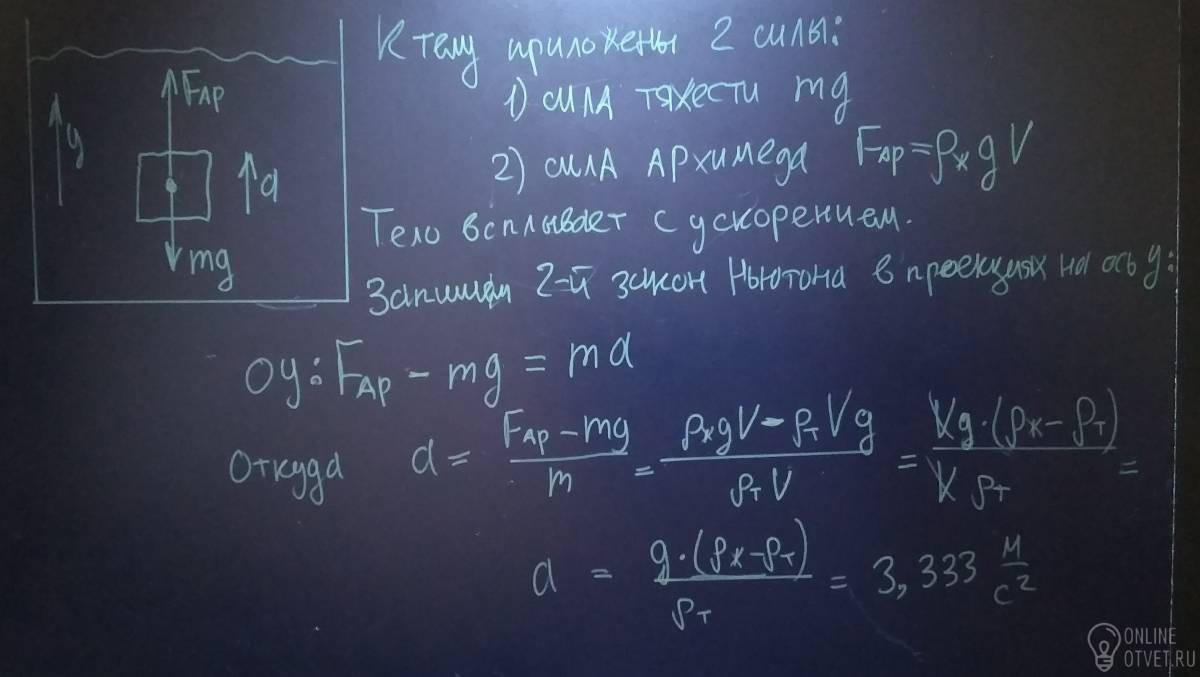 К телу приложены 2 силы:
1) сила тяжести mg
2) сила Архимеда F_Ар = ρ_ж g V
Тело всплывает с ускорением.
Запишем 2-й закон Ньютона в проекциях на ось y:
y
F_Ар
a
mg
oy: F_Ар - mg = ma
Откуда a = (F_Ар - mg)/m = (ρ_ж g V - ρ_т V g)/(ρ_т V) = (V g · (ρ_ж - ρ_т))/(V ρ_т) =
a = (g · (ρ_ж - ρ_т))/ρ_т = 3,333 м/с²
ONLINE
OTVET.RU